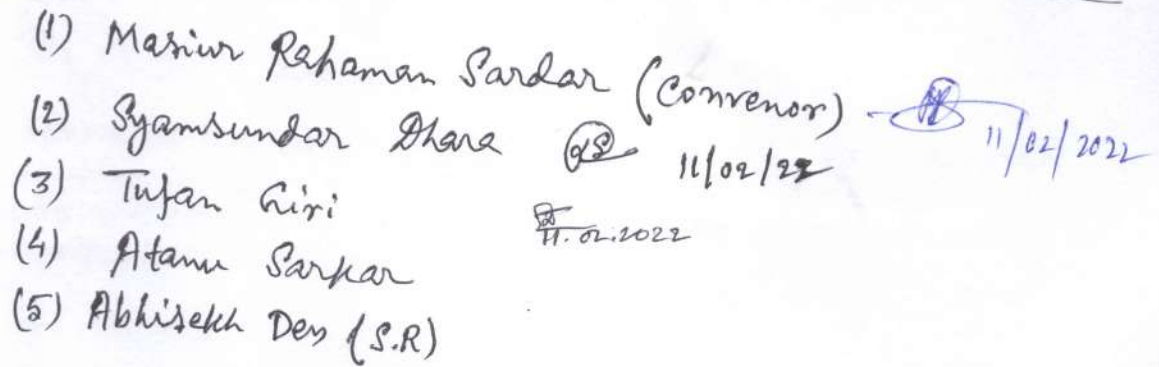 (1) Masiur Rahaman Sardar (Convenor) - 11/02/2022
(2) Syamsundar Dhara 11/02/22
(3) Tufan Giri 11.02.2022
(4) Atanu Sarkar
(5) Abhisekh Dey (S.R)